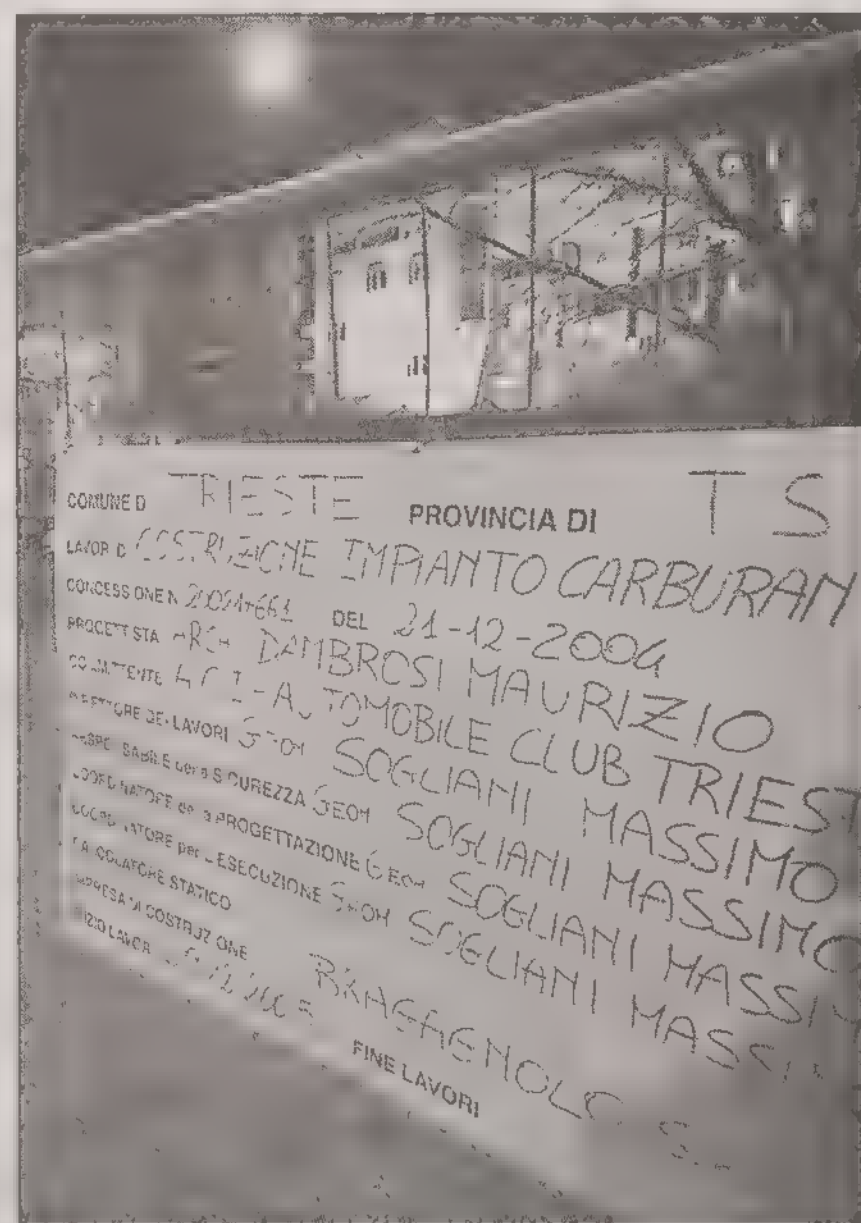 COMUNE DI TRIESTE PROVINCIA DI TS
LAVORI DI COSTRUZIONE IMPIANTO CARBURAN
CONCESSIONE N DEL 21-12-2004
PROGETTISTA ARCH DAMBROSI MAURIZIO
COMMITTENTE ACI-AUTOMOBILE CLUB TRIEST
DIRETTORE DEI LAVORI GEOM SOGLIANI MASSIMO
RESPONSABILE della SICUREZZA GEOM SOGLIANI MASSIMO
COORDINATORE della PROGETTAZIONE GEOM SOGLIANI MASSI
COORDINATORE per L'ESECUZIONE GEOM SOGLIANI MASSI
CALCOLATORE STATICO
IMPRESA DI COSTRUZIONE BRAGAGNOLO
INIZIO LAVORI FINE LAVORI